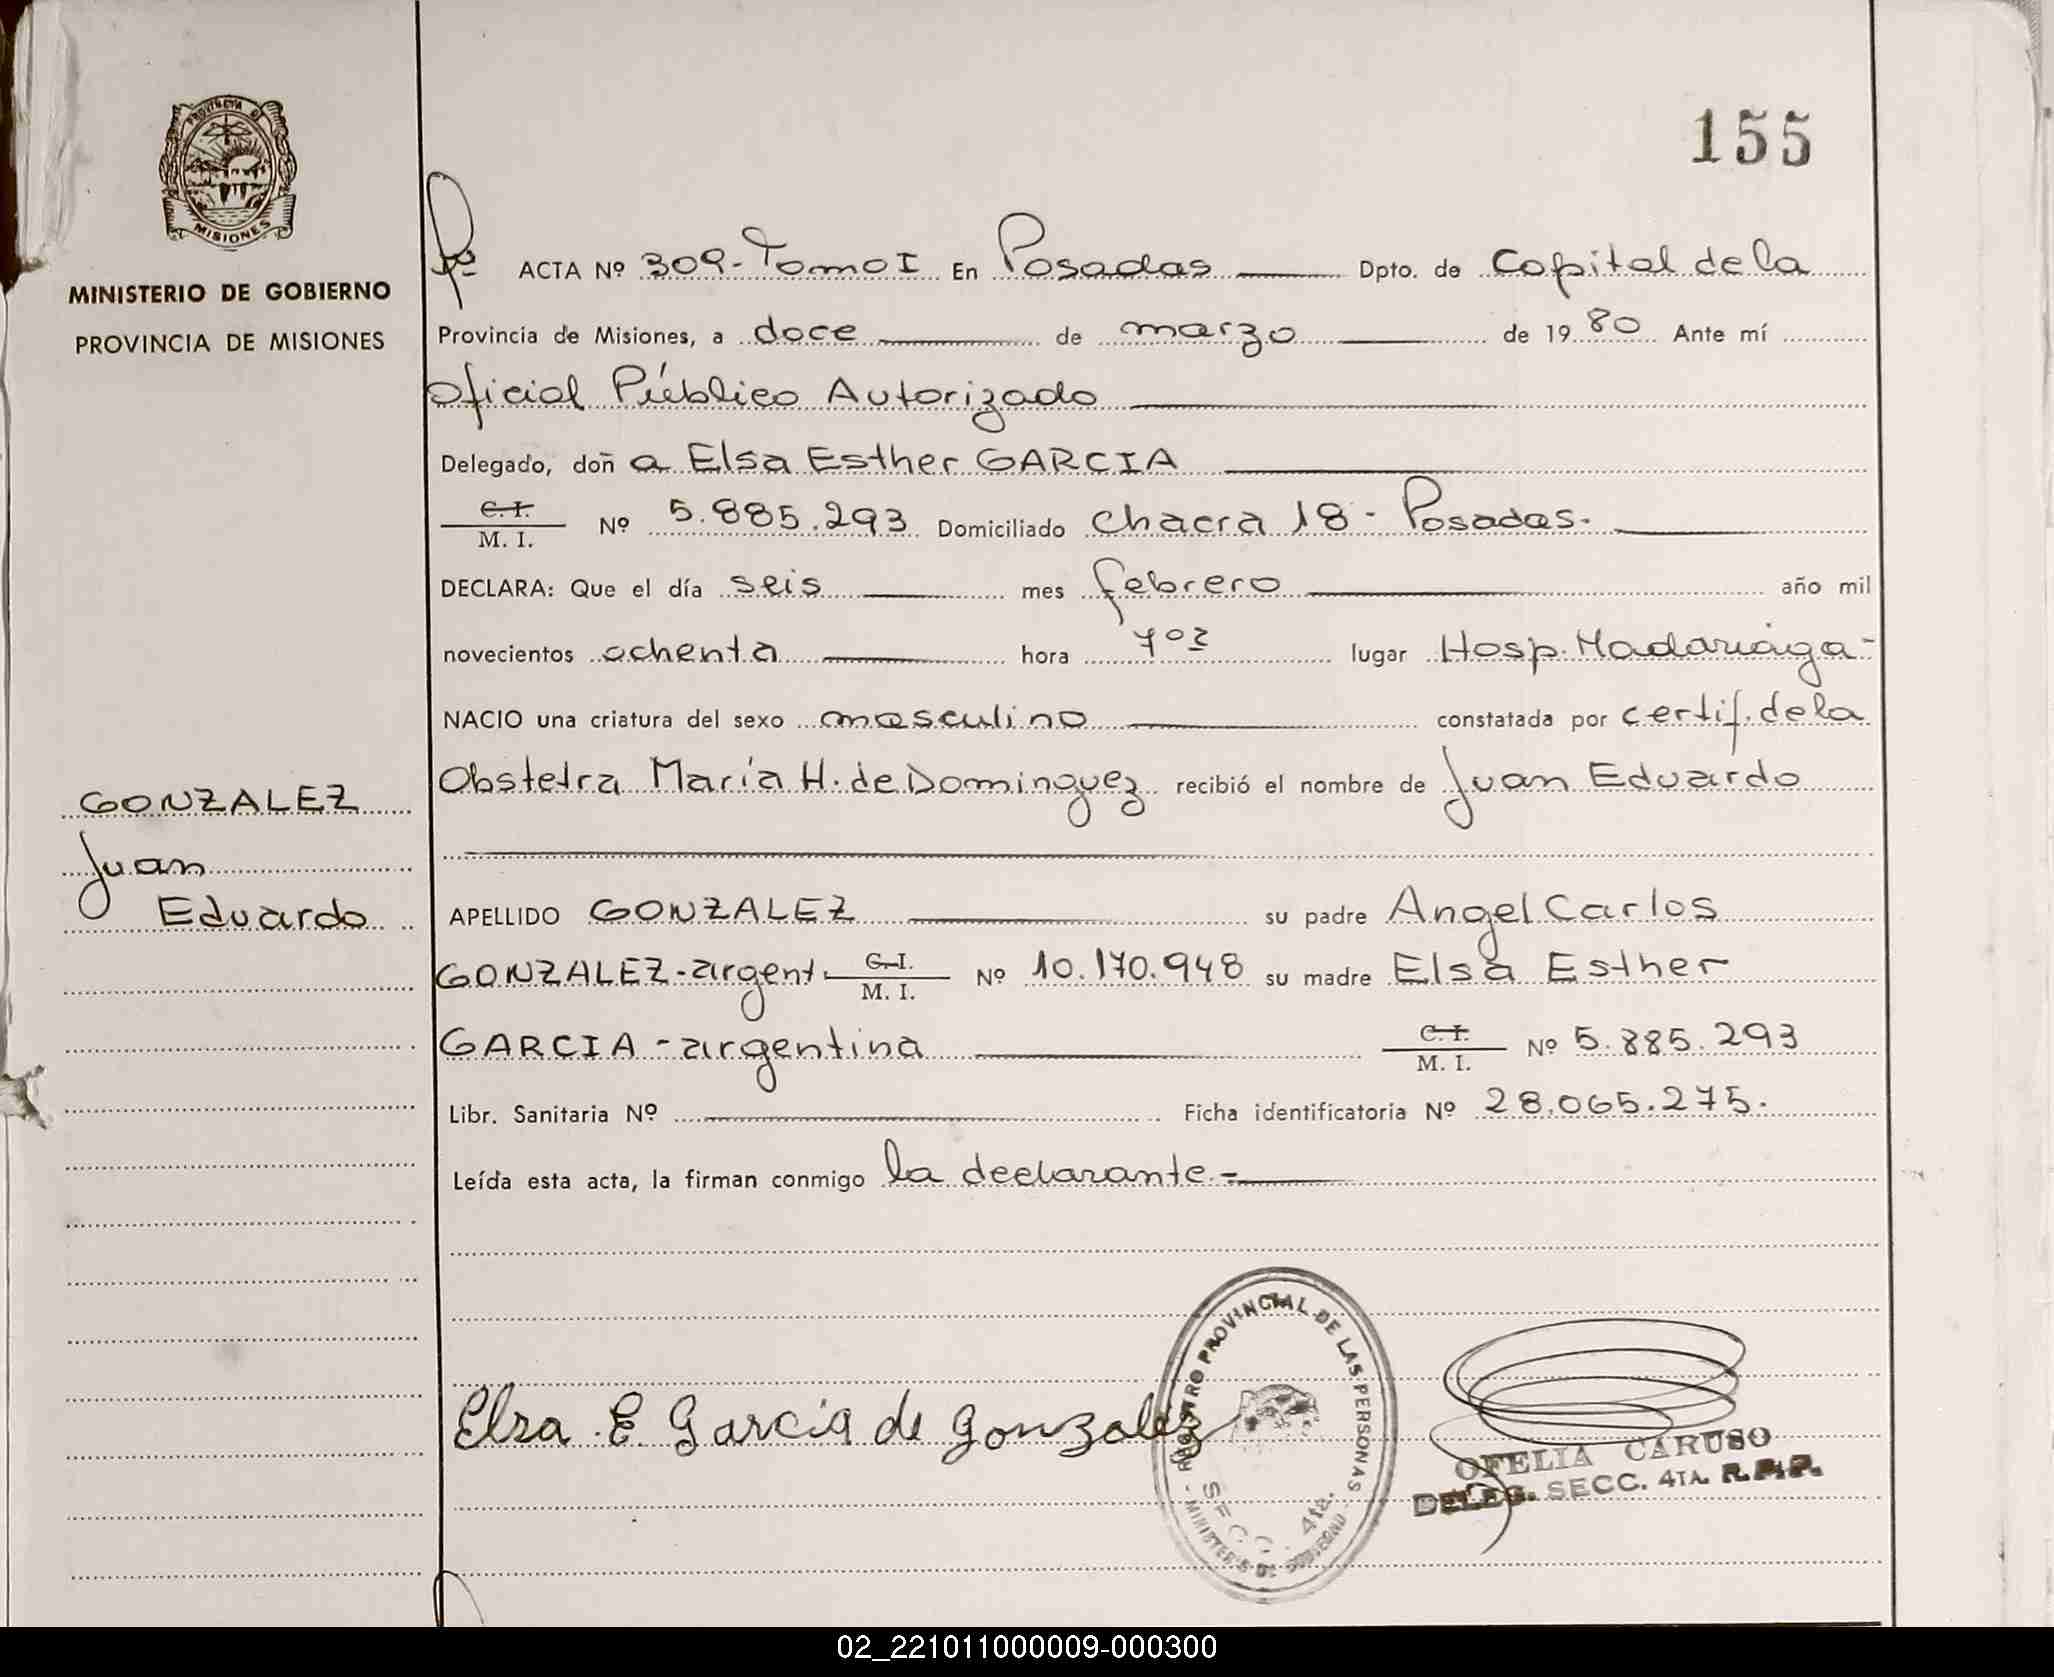 155
PROVINCIA DE
MISIONES
MINISTERIO DE GOBIERNO
PROVINCIA DE MISIONES
ACTA Nº 309-Tomo I En Posadas Dpto. de Capital de la
Provincia de Misiones, a doce de marzo de 1980 Ante mí
Oficial Público Autorizado
Delegado, doña Elsa Esther GARCIA
C. I.
M. I. Nº 5.885.293 Domiciliado Chacra 18 - Posadas.
DECLARA: Que el día seis mes febrero año mil
novecientos ochenta hora lugar Hosp. Madariaga-
NACIO una criatura del sexo masculino constatada por certif. de la
Obstetra María H. de Dominguez recibió el nombre de Juan Eduardo
GONZALEZ
Juan
Eduardo
APELLIDO GONZALEZ su padre Angel Carlos
GONZALEZ-argent. C. I. M. I. Nº 10.170.948 su madre Elsa Esther
GARCIA - argentina C. I. M. I. Nº 5.885.293
Libr. Sanitaria Nº Ficha identificatoria Nº 28.065.275.
Leída esta acta, la firman conmigo la declarante.-
Elsa E Garcia de Gonzalez
REGISTRO PROVINCIAL DE LAS PERSONAS
- MINISTERIO DE GOBIERNO -
SECC. 4ta.
OFELIA CARUSO
DELEG. SECC. 4TA. R.P.P.
02_221011000009-000300